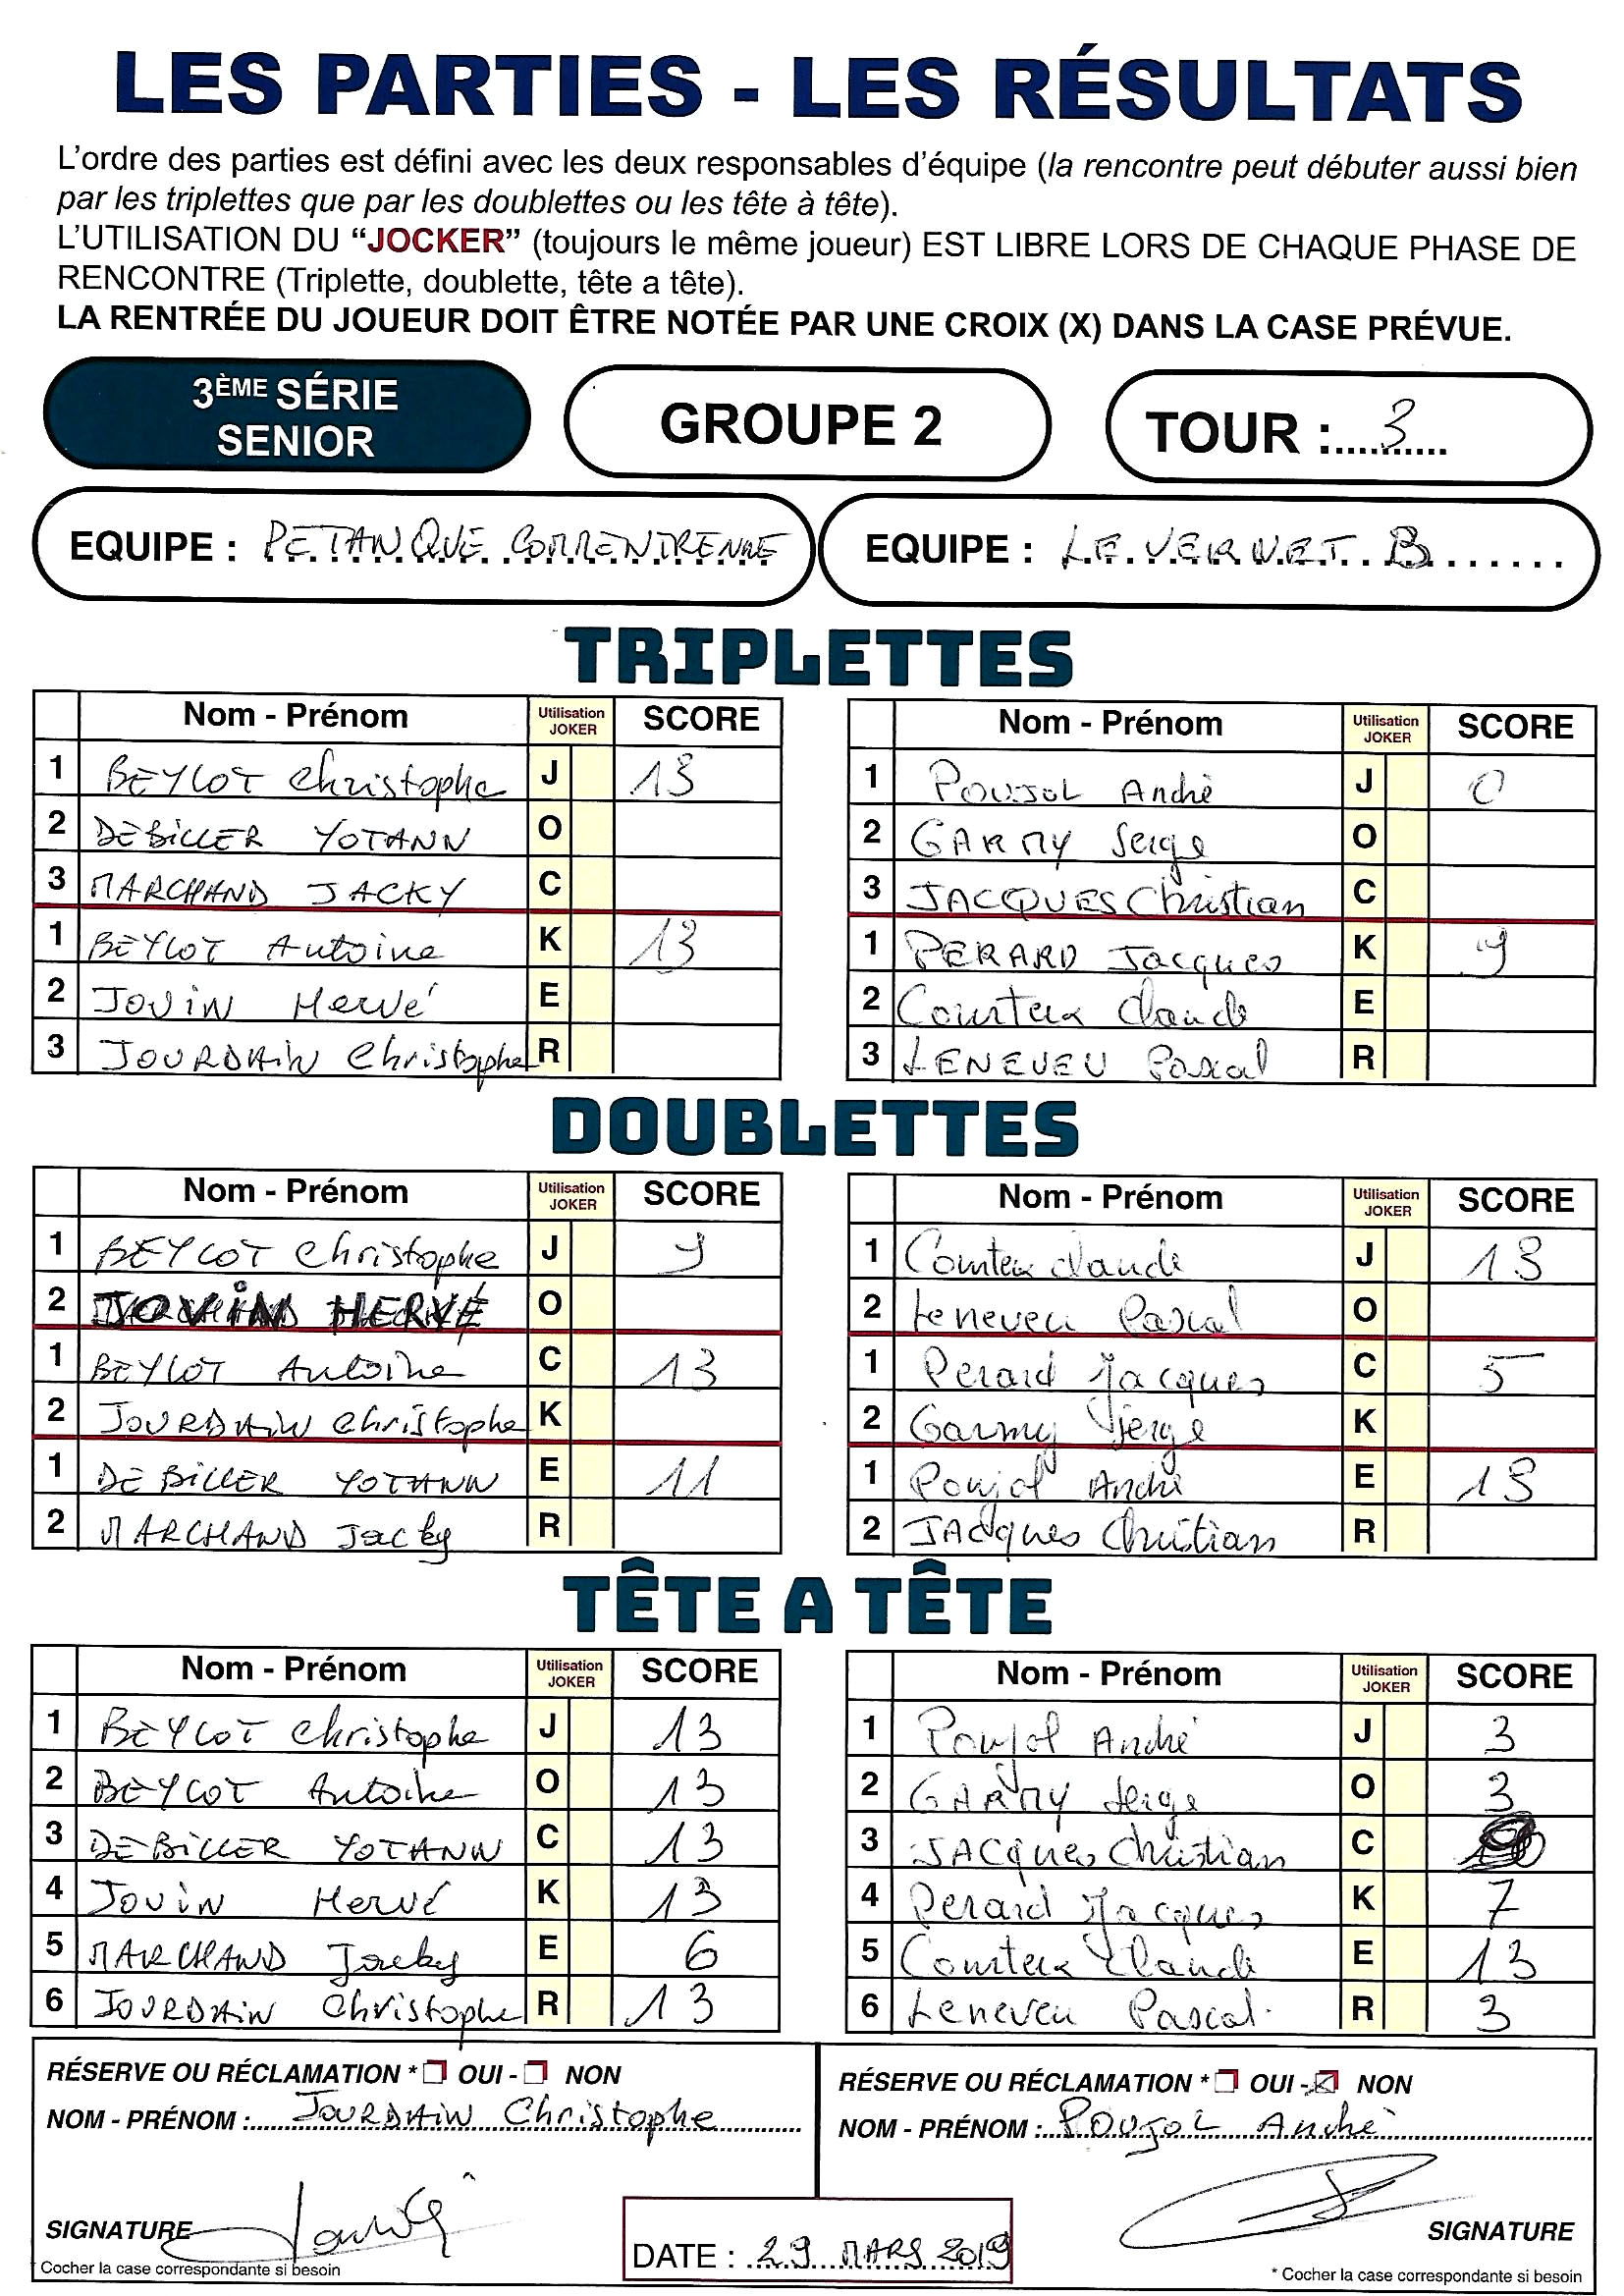 LES PARTIES - LES RÉSULTATS
L'ordre des parties est défini avec les deux responsables d'équipe (la rencontre peut débuter aussi bien
par les triplettes que par les doublettes ou les tête à tête).
L'UTILISATION DU “JOCKER” (toujours le même joueur) EST LIBRE LORS DE CHAQUE PHASE DE
RENCONTRE (Triplette, doublette, tête a tête).
LA RENTRÉE DU JOUEUR DOIT ÊTRE NOTÉE PAR UNE CROIX (X) DANS LA CASE PRÉVUE.
3ÈME SÉRIE
SENIOR
GROUPE 2
TOUR : 3
EQUIPE : PETANQUE CORRENTRENNE
EQUIPE : LE VERNET B
TRIPLETTES
Nom - Prénom Utilisation JOKER SCORE Nom - Prénom Utilisation JOKER SCORE
1 BEYLOT Christophe J 13 1 POUJOL André J 0
2 DEBILLER YOTANN O 2 GARMY Serge O
3 MARCHAND JACKY C 3 JACQUES Christian C
1 BEYLOT Antoine K 13 1 PERARD Jacques K 9
2 JOUIN Hervé E 2 Courteux Claude E
3 JOURDAIN Christophe R 3 LENEVEU Pascal R
DOUBLETTES
Nom - Prénom Utilisation JOKER SCORE Nom - Prénom Utilisation JOKER SCORE
1 BEYLOT Christophe J 9 1 Courteux Claude J 13
2 JOUIN HERVÉ O 2 Leneveu Pascal O
1 BEYLOT Antoine C 13 1 Perard Jacques C 5
2 JOURDAIN Christophe K 2 Garmy Serge K
1 DEBILLER YOTANN E 11 1 Poujol André E 13
2 MARCHAND Jacky R 2 JAcques Christian R
TÊTE A TÊTE
Nom - Prénom Utilisation JOKER SCORE Nom - Prénom Utilisation JOKER SCORE
1 BEYLOT Christophe J 13 1 Poujol André J 3
2 BEYLOT Antoine O 13 2 GARMY Serge O 3
3 DEBILLER YOTANN C 13 3 JACques Christian C
4 JOUIN Hervé K 13 4 Perard Jacques K 7
5 MARCHAND Jacky E 6 5 Courteux Claude E 13
6 JOURDAIN Christophe R 13 6 Leneveu Pascal R 3
RÉSERVE OU RÉCLAMATION * OUI - NON
NOM - PRÉNOM : JOURDAIN Christophe
SIGNATURE
* Cocher la case correspondante si besoin
RÉSERVE OU RÉCLAMATION * OUI - NON
NOM - PRÉNOM : POUJOL André
SIGNATURE
DATE : 29 MARS 2019
* Cocher la case correspondante si besoin